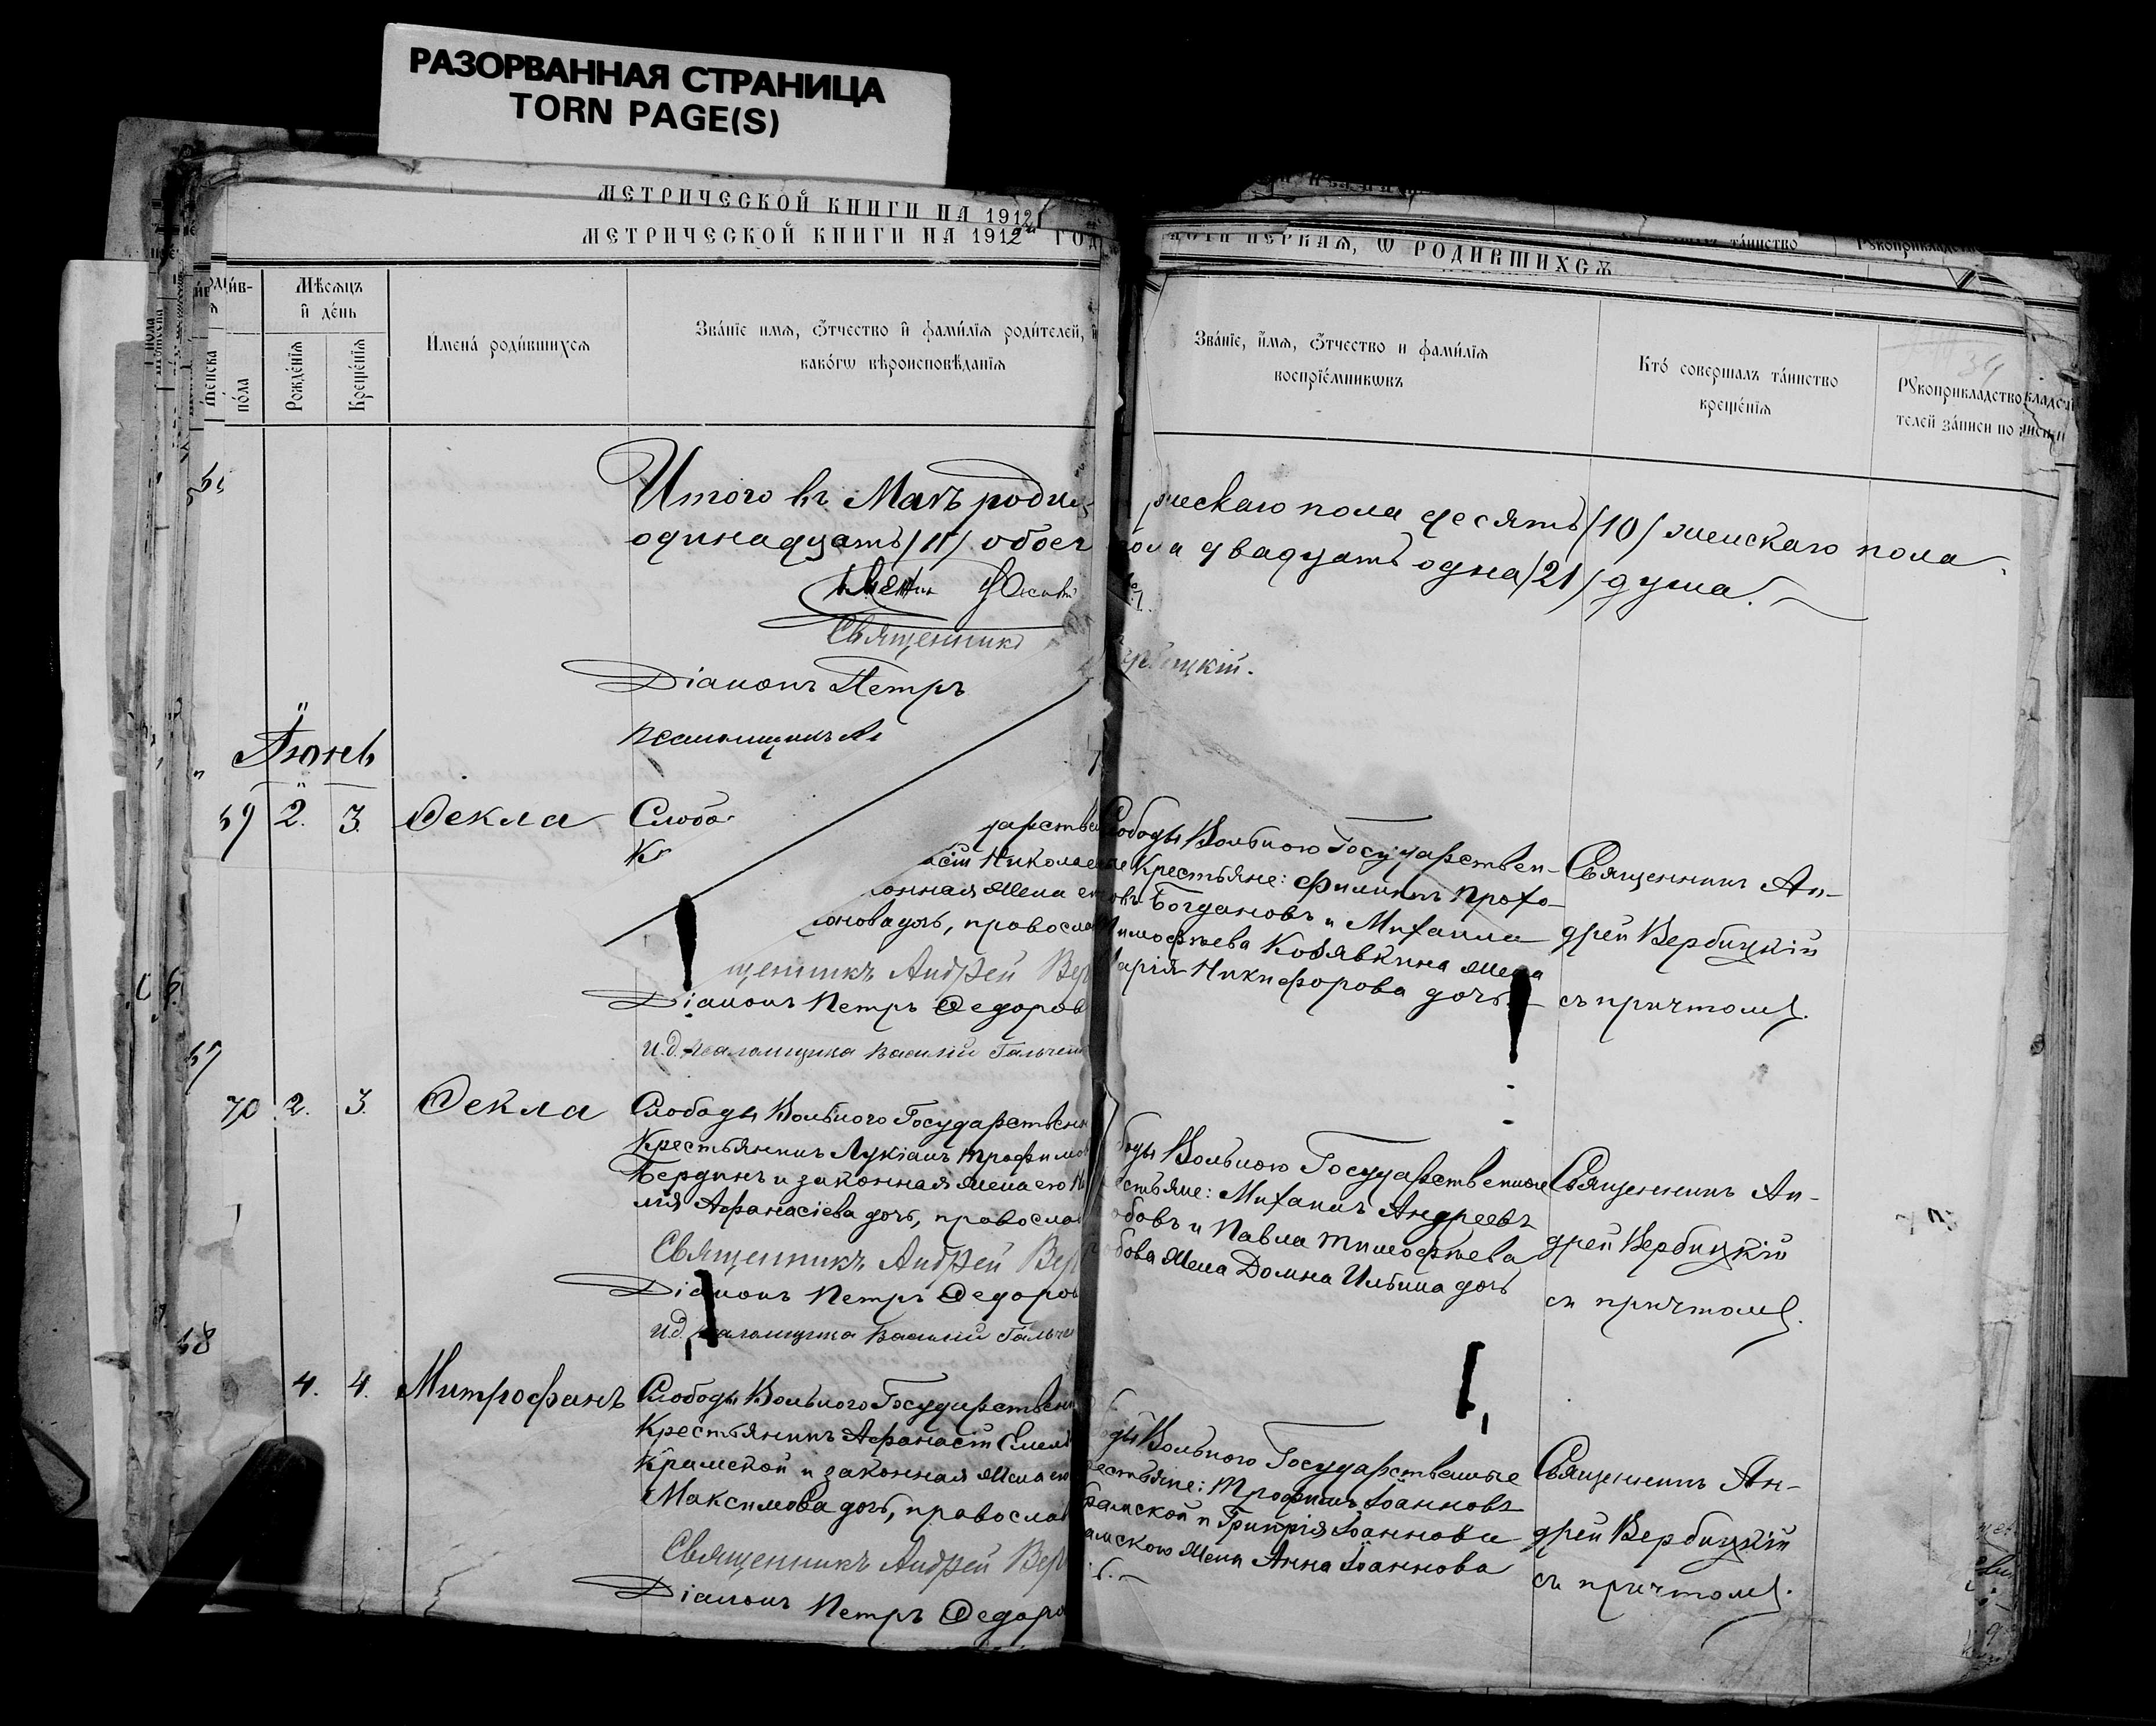 РАЗОРВАННАЯ СТРАНИЦА
TORN PAGE(S)
МЕТРИЧЕСКОЙ КНИГИ НА 1912
МЕТРИЧЕСКОЙ КНИГИ НА 1912 ГОД
ПЕРВАѦ, Ѡ РОДИВШИХСѦ
Мѣсѧцъ
и҆ де́нь
Рожде́нїѧ
Креще́нїѧ
Же́нска
по́ла
И҆мена̀ роди́вшихсѧ
Зва́нїе имѧ, ѻ҆́тчество и҆ фами́лїѧ роди́телей, и҆
како́гѡ вѣроисповѣ́данїѧ
Зва́нїе, и҆́мѧ, ѻ҆́тчество и фами́лїѧ
воспрїе́мникѡвъ
Кто̀ соверша́лъ та́инство
креще́нїѧ
Рꙋкоприкладство
телей за́писи по
Итого въ Маѣ родил
одинадцать /11/ обоег
Священникъ
Діаконъ Петръ
ужескаго пола десять /10/ женскаго пола
пола двадцать одна /21/ душа.
ербицкій.
Іюнь
59
2.
3.
Ѳекла
Слобо
К
ударствен
асій Николаев
конная жена ег
оновадочь, правосла
щенникъ Андрей Вер
Діаконъ Петръ Ѳедоров
и.д. псаломщика Василій Гальчен
Слободы Вольного Государствен-
Крестьяне: Филиппъ Прохо-
овъ Богдановъ и Михаила
Тимофѣева Козявкина жена
Марія Никифорова дочь
Священникъ Ан-
дрей Вербицкій
съ причтомъ.
70
2.
3.
Ѳекла
Слободы Вольного Государственн
Крестьянинъ Лукіанъ Трофимов
Бердинъ и законная жена его
Афанасіева дочь, правосла
Священникъ Андрей Вер
Діаконъ Петръ Ѳедоров
и.д. псаломщика Василій Гальче
боды Вольного Государственные
стьяне: Михаилъ Андреевъ
обовъ и Павла Тимофѣева
бова жена Домна Ильина дочь
Священникъ Ан-
дрей Вербицкій
съ причтомъ.
58
4.
4.
Митрофанъ
Слободы Вольного Государствен
Крестьянинъ Афанасій Емель
Крамской и законная жена ег
Максимова дочь, правослов
Священникъ Андрей Вер
Діаконъ Петръ Ѳедоро
оды Вольного Государственные
рестьяне: Трофимъ Іоанновъ
рамской и Григорія Іоаннова
амского жена Анна Іоаннова
Священникъ Ан-
дрей Вербицкій
съ причтомъ.